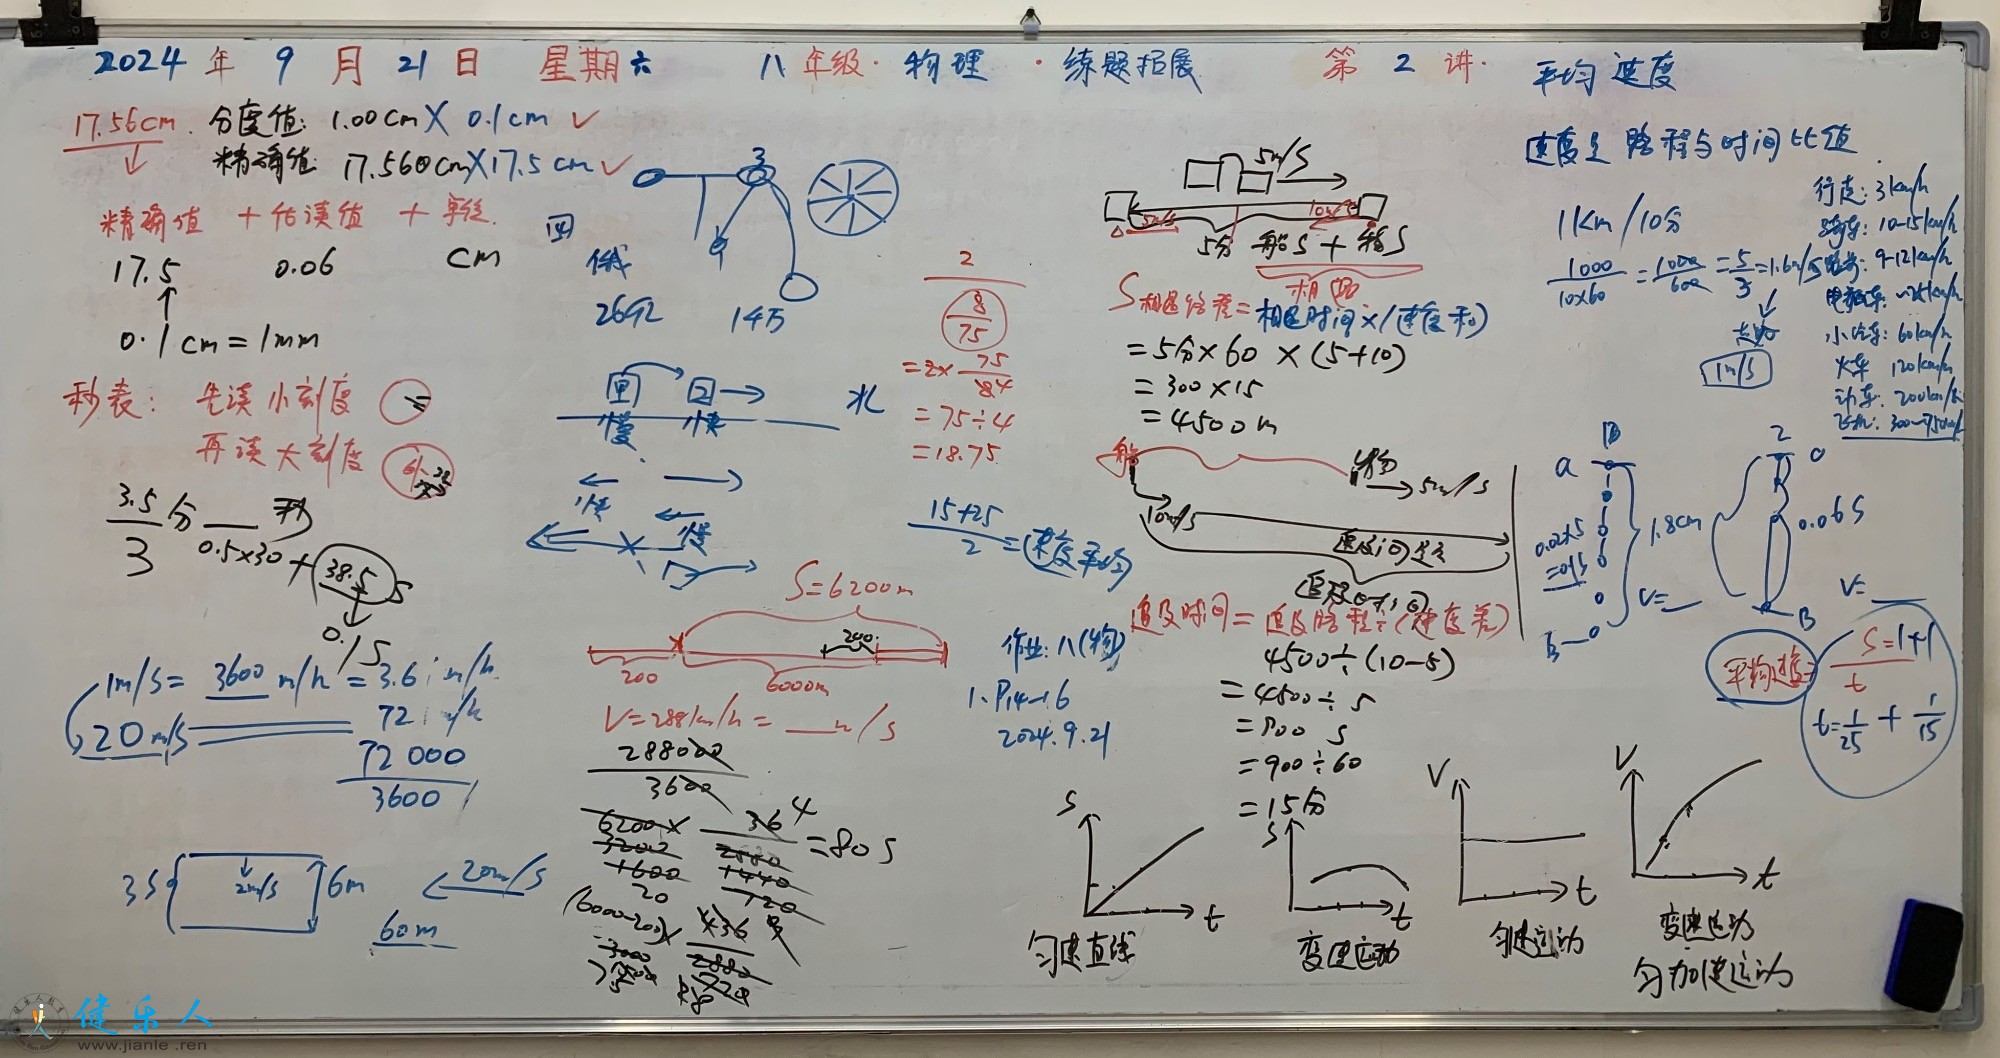 2024 年 9 月 21 日 星期六 八年级·物理·练题拓展 第 2 讲· 平均速度
17.56cm. 分度值: 1.00cm X 0.1cm ✓
精确值: 17.560cm X 17.5cm ✓
精确值 + 估读值 + 单位.
17.5 0.06 cm
0.1cm = 1mm
秒表: 先读小刻度
再读大刻度
3.5分 秒
3 0.5×30 + 38.5 S
0.1S
1m/s = 3600 m/h = 3.6
20 m/s 72
72 000
3600
3S 2m/s 6m 20m/s
60m
3
四
俄
2692 14万
北
慢 快
快
慢
S=6200m
200
200 6000m
V=288km/h = __ m/s
288000
3600
6200 × 36 4 = 80 S
3200 2880
1600 1440
20 720
(6000-200)× 36
3000 2880
2
8
75
= 2×
= 75÷4
= 18.75
15+25
2 = (速度平均)
作业: 八(物)
1. P14-16
2024.9.21
5m/s
5m/s 10m/s
5分 船S +
相遇
S相遇路程=相遇时间×(速度和)
= 5分×60 × (5+10)
= 300×15
= 4500m
船 物 5m/s
10m/s
追及时间
追及时间 = 追及路程÷(速度差)
4500÷(10-5)
= 4500÷5
= 900 S
= 900÷60
= 15分
速度是 路程与时间比值.
1km/10分
1000
10×60 = 1000
600 = 5
3 = 1.6m/s
走路
1m/s
行走: 3km/h
骑车: 10-15km/h
跑步: 9-12km/h
电瓶车: ~25km/h
小汽车: 60km/h
火车 120km/h
动车: 200km/h
飞机:
a
0.02×5
=0.1S
1.8cm
V= __
B
0.06S
V= __
B
平均速度= S=1+1
t
t= 1/25 + 1/15
S t
匀速直线
S t
变速运动
V t
匀速运动
V t
变速运动
匀加速运动
健乐人
www.jianle.ren